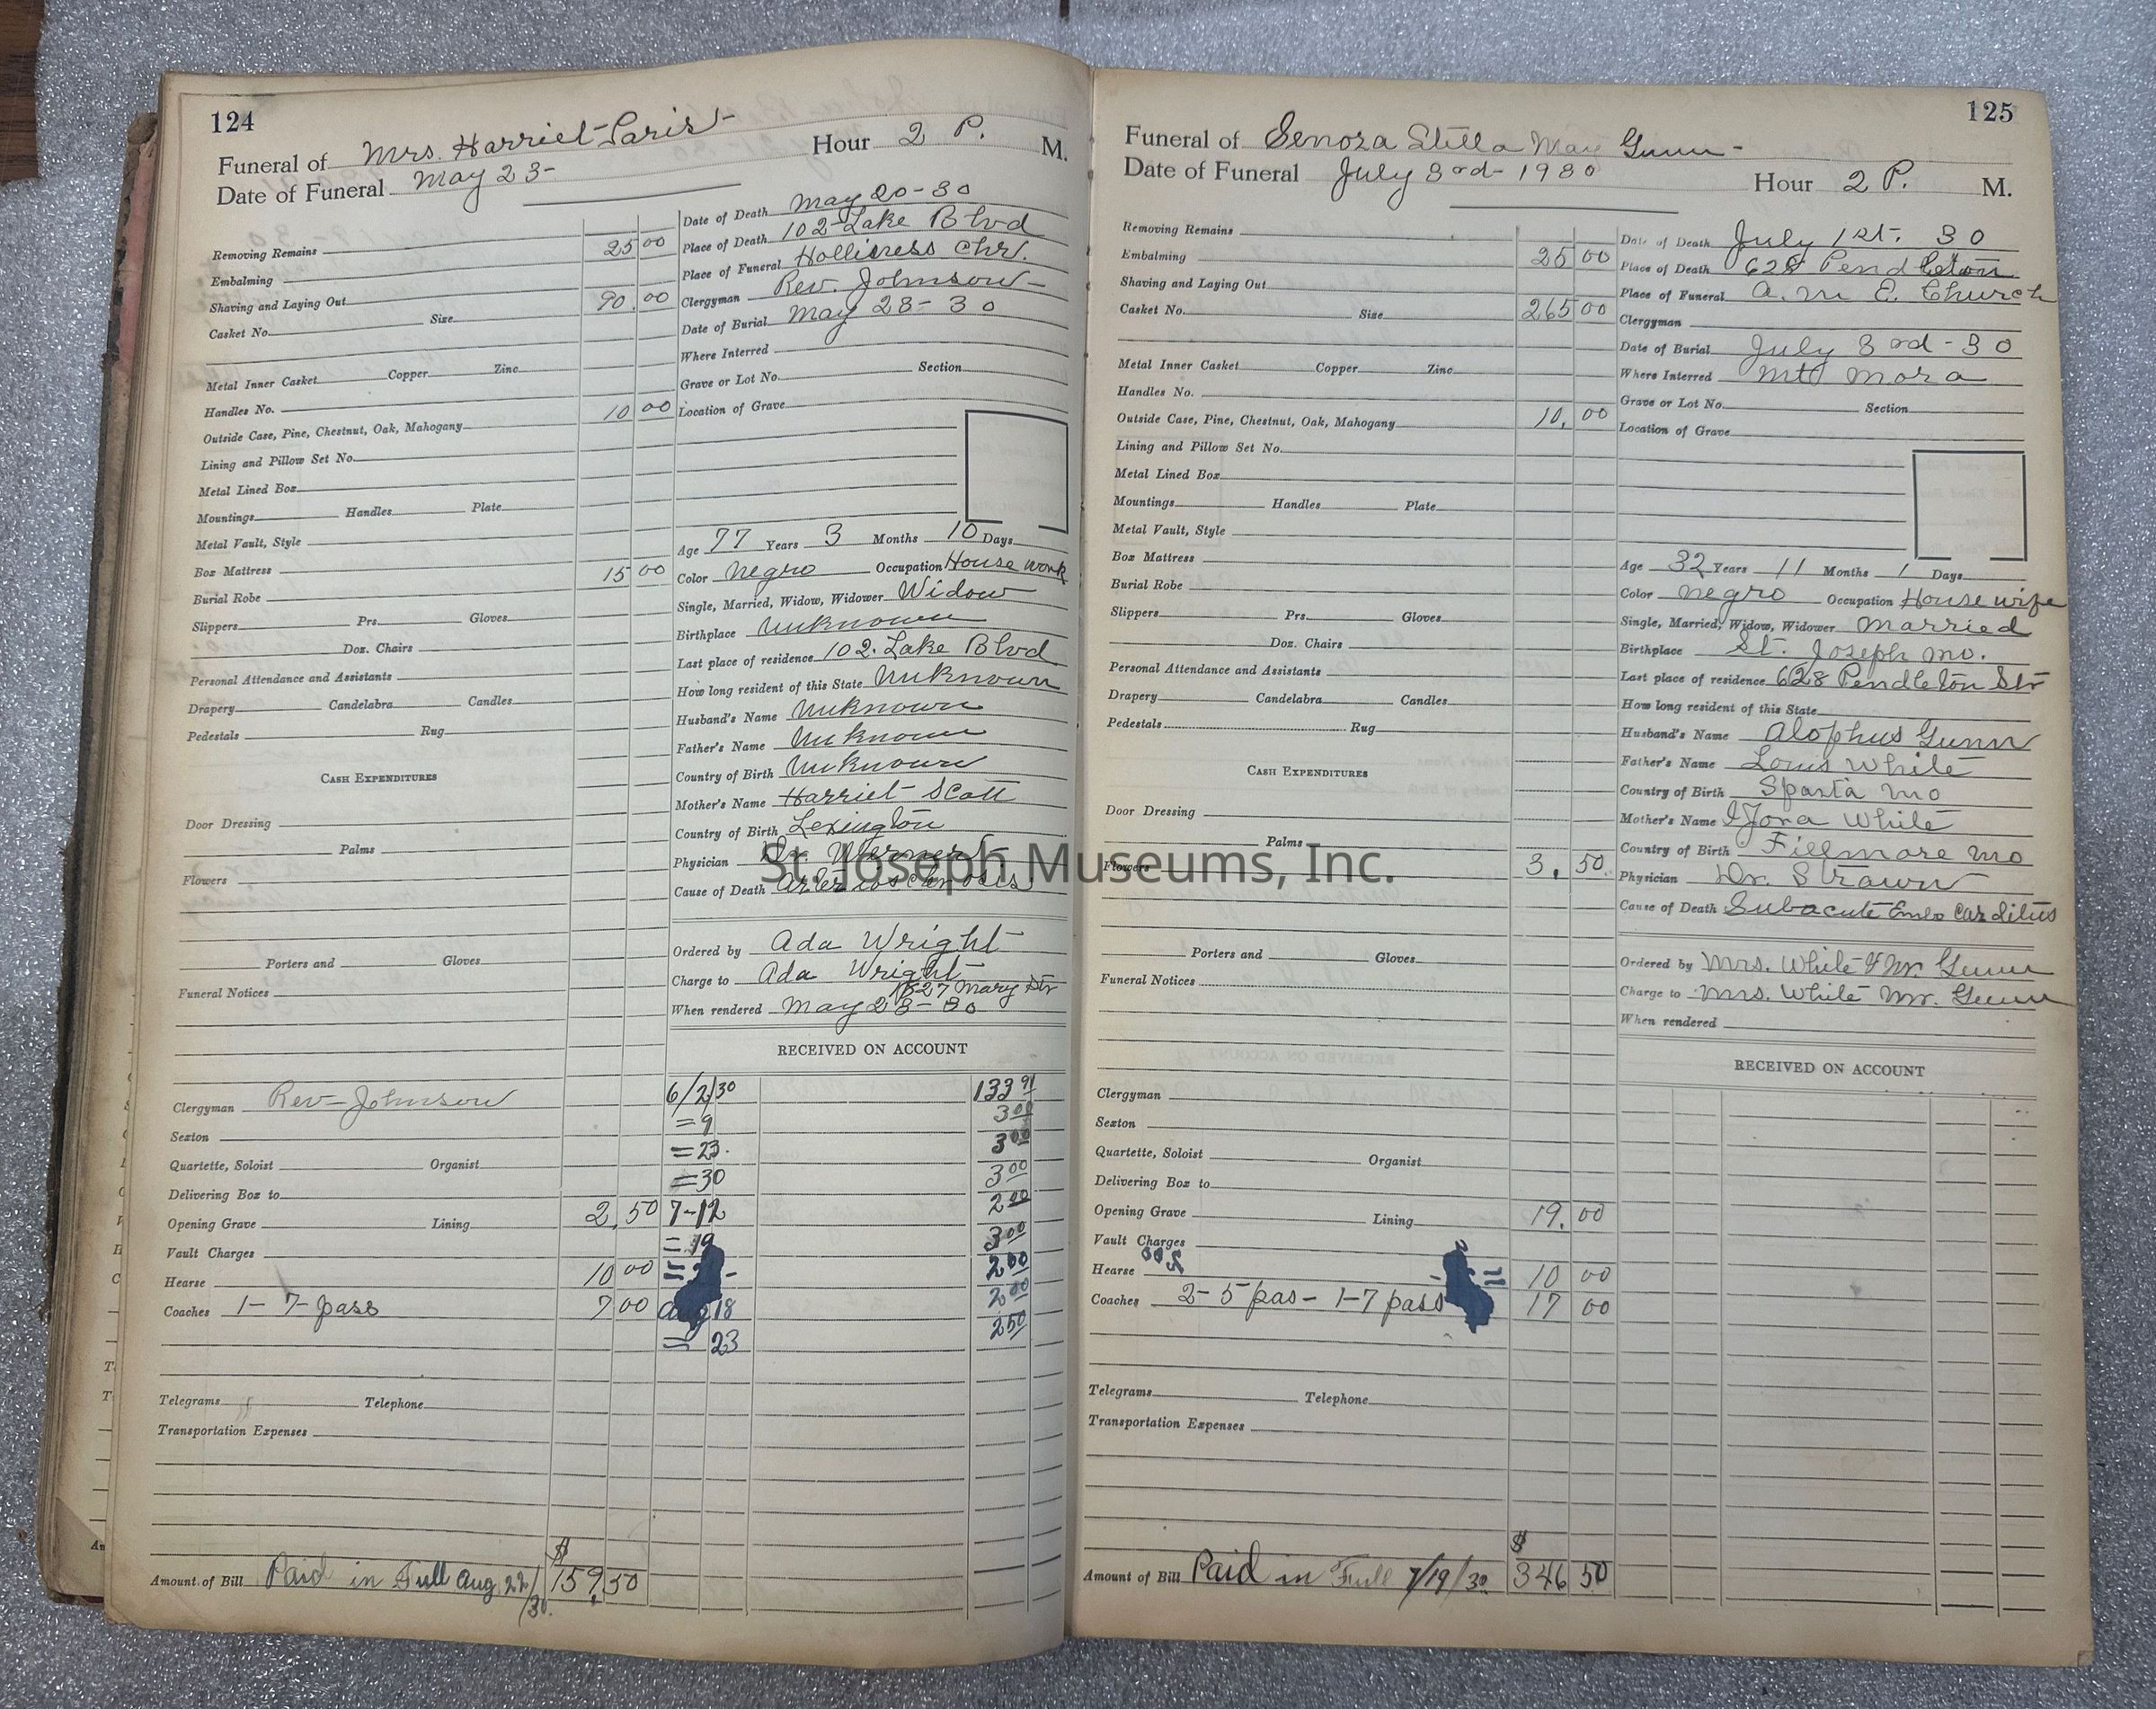 124
Funeral of Mrs. Harriet Paris Hour 2 P. M.
Date of Funeral May 23-
Removing Remains
Embalming 25 00
Shaving and Laying Out
Casket No. Size 90.00
Metal Inner Casket Copper Zinc
Handles No.
Outside Case, Pine, Chestnut, Oak, Mahogany 10 00
Lining and Pillow Set No.
Metal Lined Box
Mountings Handles Plate
Metal Vault, Style
Box Mattress
Burial Robe 15 00
Slippers Prs. Gloves
Doz. Chairs
Personal Attendance and Assistants
Drapery Candelabra Candles
Pedestals Rug
CASH EXPENDITURES
Door Dressing
Palms
Flowers
Porters and Gloves
Funeral Notices
Clergyman Rev Johnson
Sexton
Quartette, Soloist Organist
Delivering Box to
Opening Grave Lining 2.50
Vault Charges
Hearse 10 00
Coaches 1-7-pass 7 00
Telegrams Telephone
Transportation Expenses
Amount of Bill Paid in Full Aug 22/30. $159.50
Date of Death May 20-30
Place of Death 102-Lake Blvd
Place of Funeral Chr.
Clergyman Rev. Johnson-
Date of Burial May 23-30
Where Interred
Grave or Lot No. Section
Location of Grave
Age 77 Years 3 Months 10 Days
Color Negro Occupation House work
Single, Married, Widow, Widower Widow
Birthplace Unknown
Last place of residence 102. Lake Blvd
How long resident of this State Unknown
Husband's Name Unknown
Father's Name Unknown
Country of Birth Unknown
Mother's Name Harriet Scott
Country of Birth Lexington
Physician Dr.
Cause of Death
Ordered by Ada Wright
Charge to Ada Wright
1827 Mary Str
When rendered May 23-30
RECEIVED ON ACCOUNT
6/2/30 133 91
= 9 3 00
= 23. 3 00
= 30 3 00
7-12 2 00
= 19 3 00
= 2 00
Aug 18 2 00
= 23 2 50
125
Funeral of Senora Stella May Gunn-
Date of Funeral July 3rd-1930 Hour 2 P. M.
Removing Remains
Embalming 25 00
Shaving and Laying Out
Casket No. Size 265 00
Metal Inner Casket Copper Zinc
Handles No.
Outside Case, Pine, Chestnut, Oak, Mahogany 10.00
Lining and Pillow Set No.
Metal Lined Box
Mountings Handles Plate
Metal Vault, Style
Box Mattress
Burial Robe
Slippers Prs. Gloves
Doz. Chairs
Personal Attendance and Assistants
Drapery Candelabra Candles
Pedestals Rug
CASH EXPENDITURES
Door Dressing
Palms
Flowers 3.50.
Porters and Gloves
Funeral Notices
Clergyman
Sexton
Quartette, Soloist Organist
Delivering Box to
Opening Grave Lining 19.00
Vault Charges
Hearse 10 00
Coaches 2-5 pas- 1-7 pass 17 00
Telegrams Telephone
Transportation Expenses
Amount of Bill Paid in Full 7/19/30. $346 50
Date of Death July 1st. 30
Place of Death 628 Pendleton
Place of Funeral A. M E. Church
Clergyman
Date of Burial July 3rd-30
Where Interred Mt Mora
Grave or Lot No. Section
Location of Grave
Age 32 Years 11 Months 1 Days
Color Negro Occupation House wife
Single, Married, Widow, Widower Married
Birthplace St. Joseph Mo.
Last place of residence 628 Pendleton Str
How long resident of this State
Husband's Name Alophus Gunn
Father's Name Louis White
Country of Birth Sparta Mo
Mother's Name White
Country of Birth Fillmore Mo
Physician Dr. Strawn
Cause of Death Subacute
Ordered by Mrs. White & Mr Gunn
Charge to Mrs. White Mr. Gunn
When rendered
RECEIVED ON ACCOUNT
St. Joseph Museums, Inc.